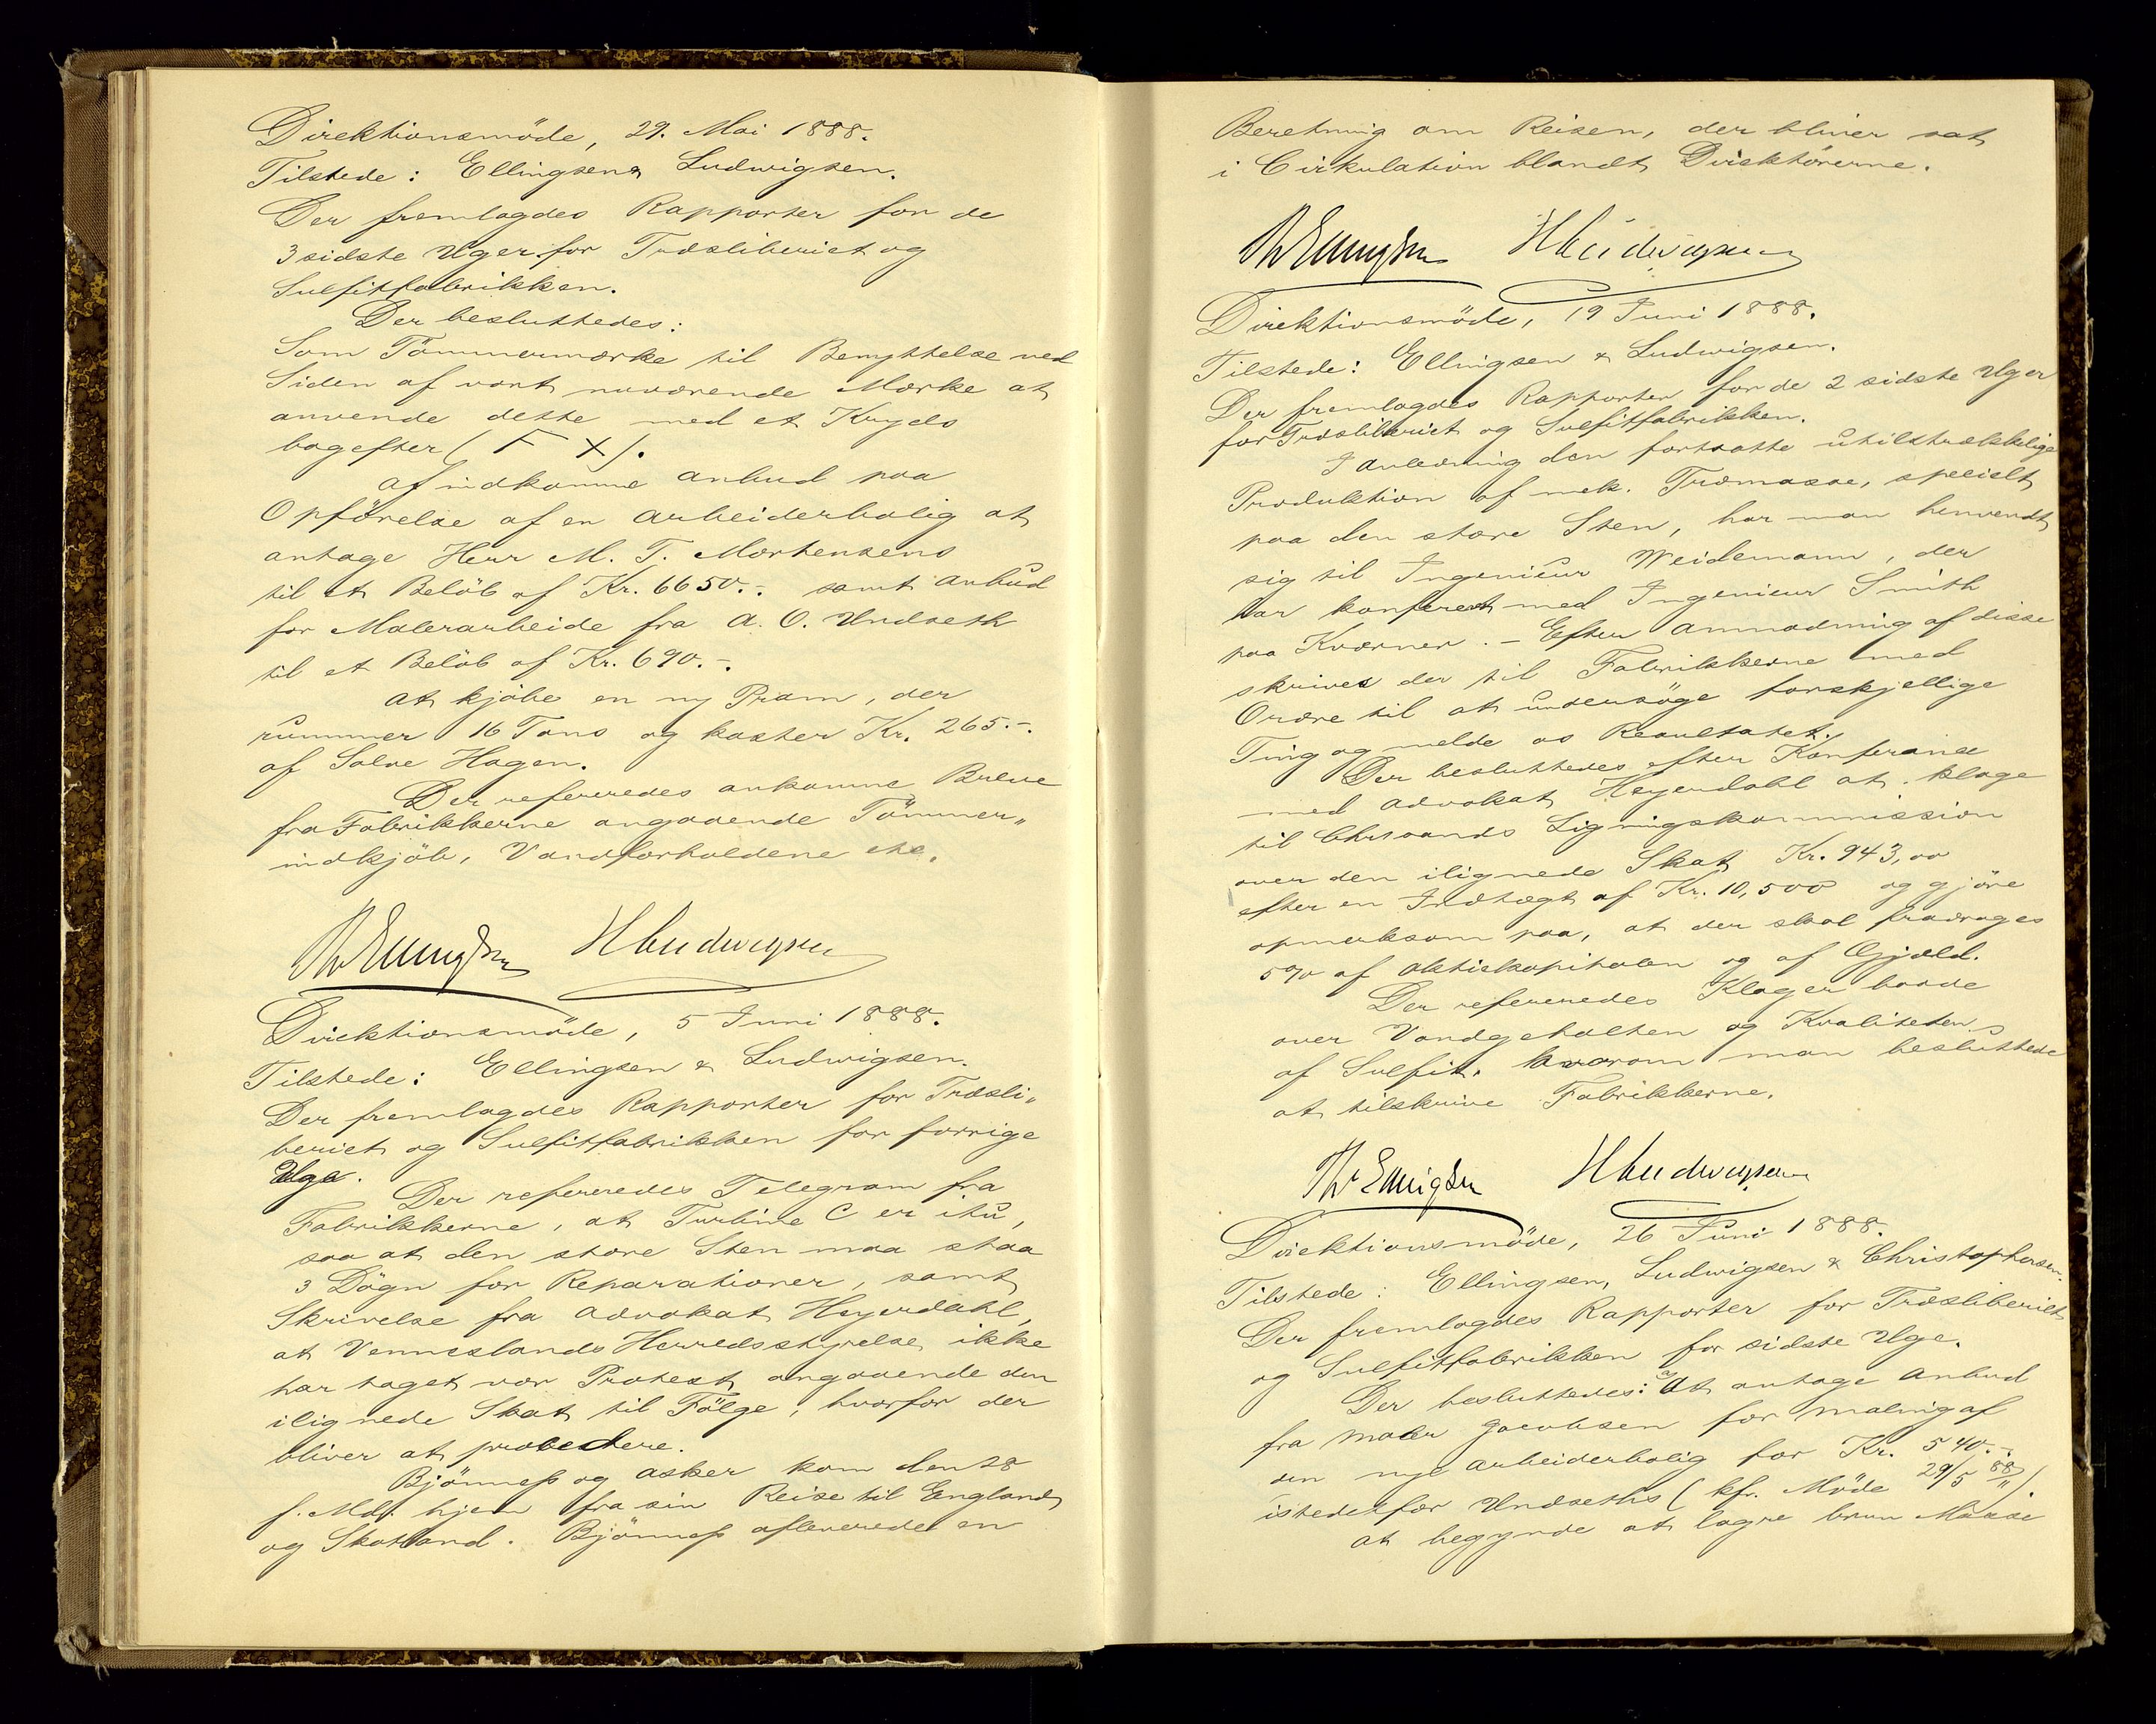 Direktionsmöde, 29. Mai 1888.
Tilstede: Ellingsen & Ludwigsen.
Der fremlagdes Rapporter for de
3 sidste Uger for Træsliberiet og
Sulfitfabrikken.
Der besluttedes:
Som Tömmermærke til Benyttelse ved
Siden af vort nuværende Mærke at
anvende dette med et Kryds
bagefter ( X).
Af indkomne Anbud paa
Opförelse af en Arbeiderbolig at
antage Herr M. T. Mortensens
til et Belöb af Kr. 6650.- samt Anbud
for Malerarbeide fra A. O. Undseth
til et Belöb af Kr. 690.-.
At kjöbe en ny Pram, der
rummer 16 Tons og koster Kr. 265.-.
af Salve Hagen.
Der refereredes ankomne Breve
fra Fabrikkerne angaaende Tömmer„
indkjöb, Vandforholdene etc.
Th Ellingsen H Ludwigsen
Direktionsmöde, 5 Juni 1888.
Tilstede: Ellingsen & Ludwigsen.
Der fremlagdes Rapporter for Træsli„
beriet og Sulfitfabrikken for forrige
Uge.
Der refereredes Telegram fra
Fabrikkerne, at Turbine C er itu,
saa at den store Sten maa staa
3 Dögn for Reparationer, samt
Skrivelse fra Advokat Heyerdahl,
at Venneslands Herredsstyrelse ikke
har taget vor Protest angaaende den
ilignede Skat til Fölge, hvorfor der
bliver at procedere.
Bjönness og Asker kom den 28
f. Md. hjem fra sin Reise til England
og Skotland. Bjönness afleverede en
Beretning om Reisen, der bliver sat
i Cirkulation blandt Direktörerne.
Th Ellingsen H Ludwigsen
Direktionsmöde, 19 Juni 1888.
Tilstede: Ellingsen & Ludwigsen.
Der fremlagdes Rapporter for de 2 sidste Uger
for Træsliberiet og Sulfitfabrikken.
I Anledning den fortsatte utilstrækkelige
Produktion af mek. Træmasse, specielt
paa den store Sten, har man henvendt
sig til Ingenieur Weidemann, der
har konfereret med Ingenieur Smith
paa Kværner. – Efter Anmodning af disse
skrives der til Fabrikkerne med
Ordre til at undersöge forskjellige
Ting og melde os Resultatet.
Der besluttedes efter Konferanse
med Advokat Heyerdahl at klage
til Chrsands Ligningskommission
over den ilignede Skat Kr. 943,00
efter en Indtægt af Kr. 10,500 og gjöre
opmerksom paa, at der skal fradrages
5% af Aktiekapitalen og af Gjæld.
Der refereredes Klager baade
over Vandgehalten og Kvaliteten
af Sulfit, hvorom man besluttede
at tilskrive Fabrikkerne.
Th Ellingsen H Ludwigsen
Direktionsmöde, 26 Juni 1888.
Tilstede: Ellingsen, Ludwigsen & Christophersen.
Der fremlagdes Rapporter for Træsliberiet
og Sulfitfabrikken for sidste Uge.
Der besluttedes: At antage Anbud
fra Maler Jacobsen for Maling af
den nye Arbeiderbolig for Kr. 540.-
istedetfor Undseths (kfr. Möde 29/5 88).
at begynde at lagre brun Masse